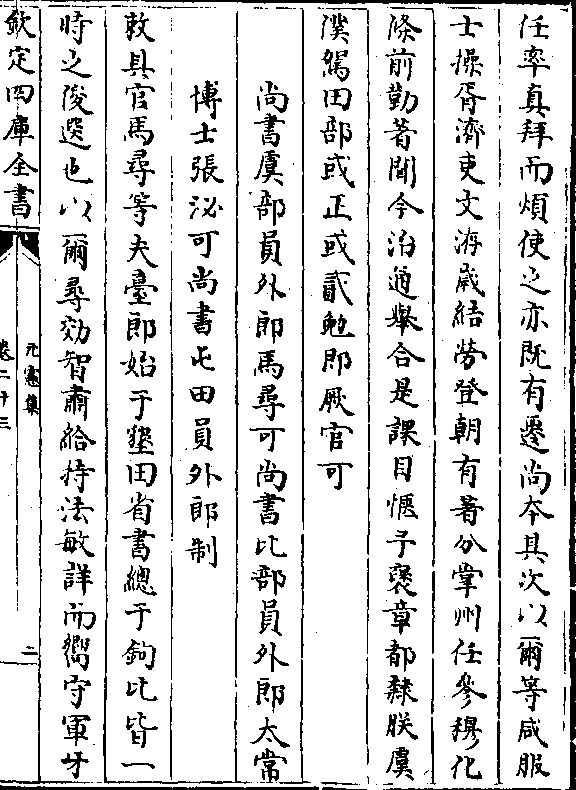 任率真拜而煩使之亦既有遷尚本其次以爾等咸服
士操胥濟吏文洊歲結勞登朝有著分掌州任參穆化
條前勤著聞今治通舉合是課目愜予褒章都隸朕虞
濮駕田部或正或貳勉即厥官可
尚書虞部員外郎馬尋可尚書比部員外郎太常
博士張泌可尚書屯田員外郎制
敕具官馬尋等夫臺郎始于墾田省書總于鉤比皆一
時之俊選也以爾尋効智肅給持法敏詳而嚮守軍牙
欽定四庫全書
元憲集
卷二十三
二